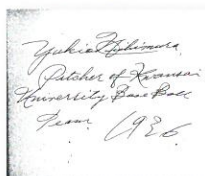 Yukio Nishimura
Pitcher of Kwansai
University Base Ball
Team
1936.